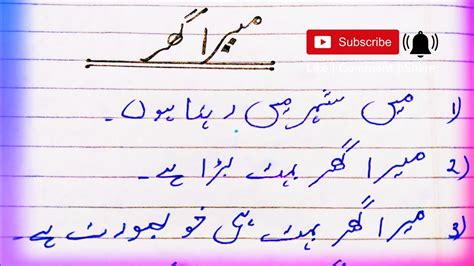 میرا گھر
Subscribe
Like | Comment | Share
1) میں شہر میں رہتا ہوں۔
2) میرا گھر بہت بڑا ہے۔
3) میرا گھر بہت ہی خوبصورت ہے۔